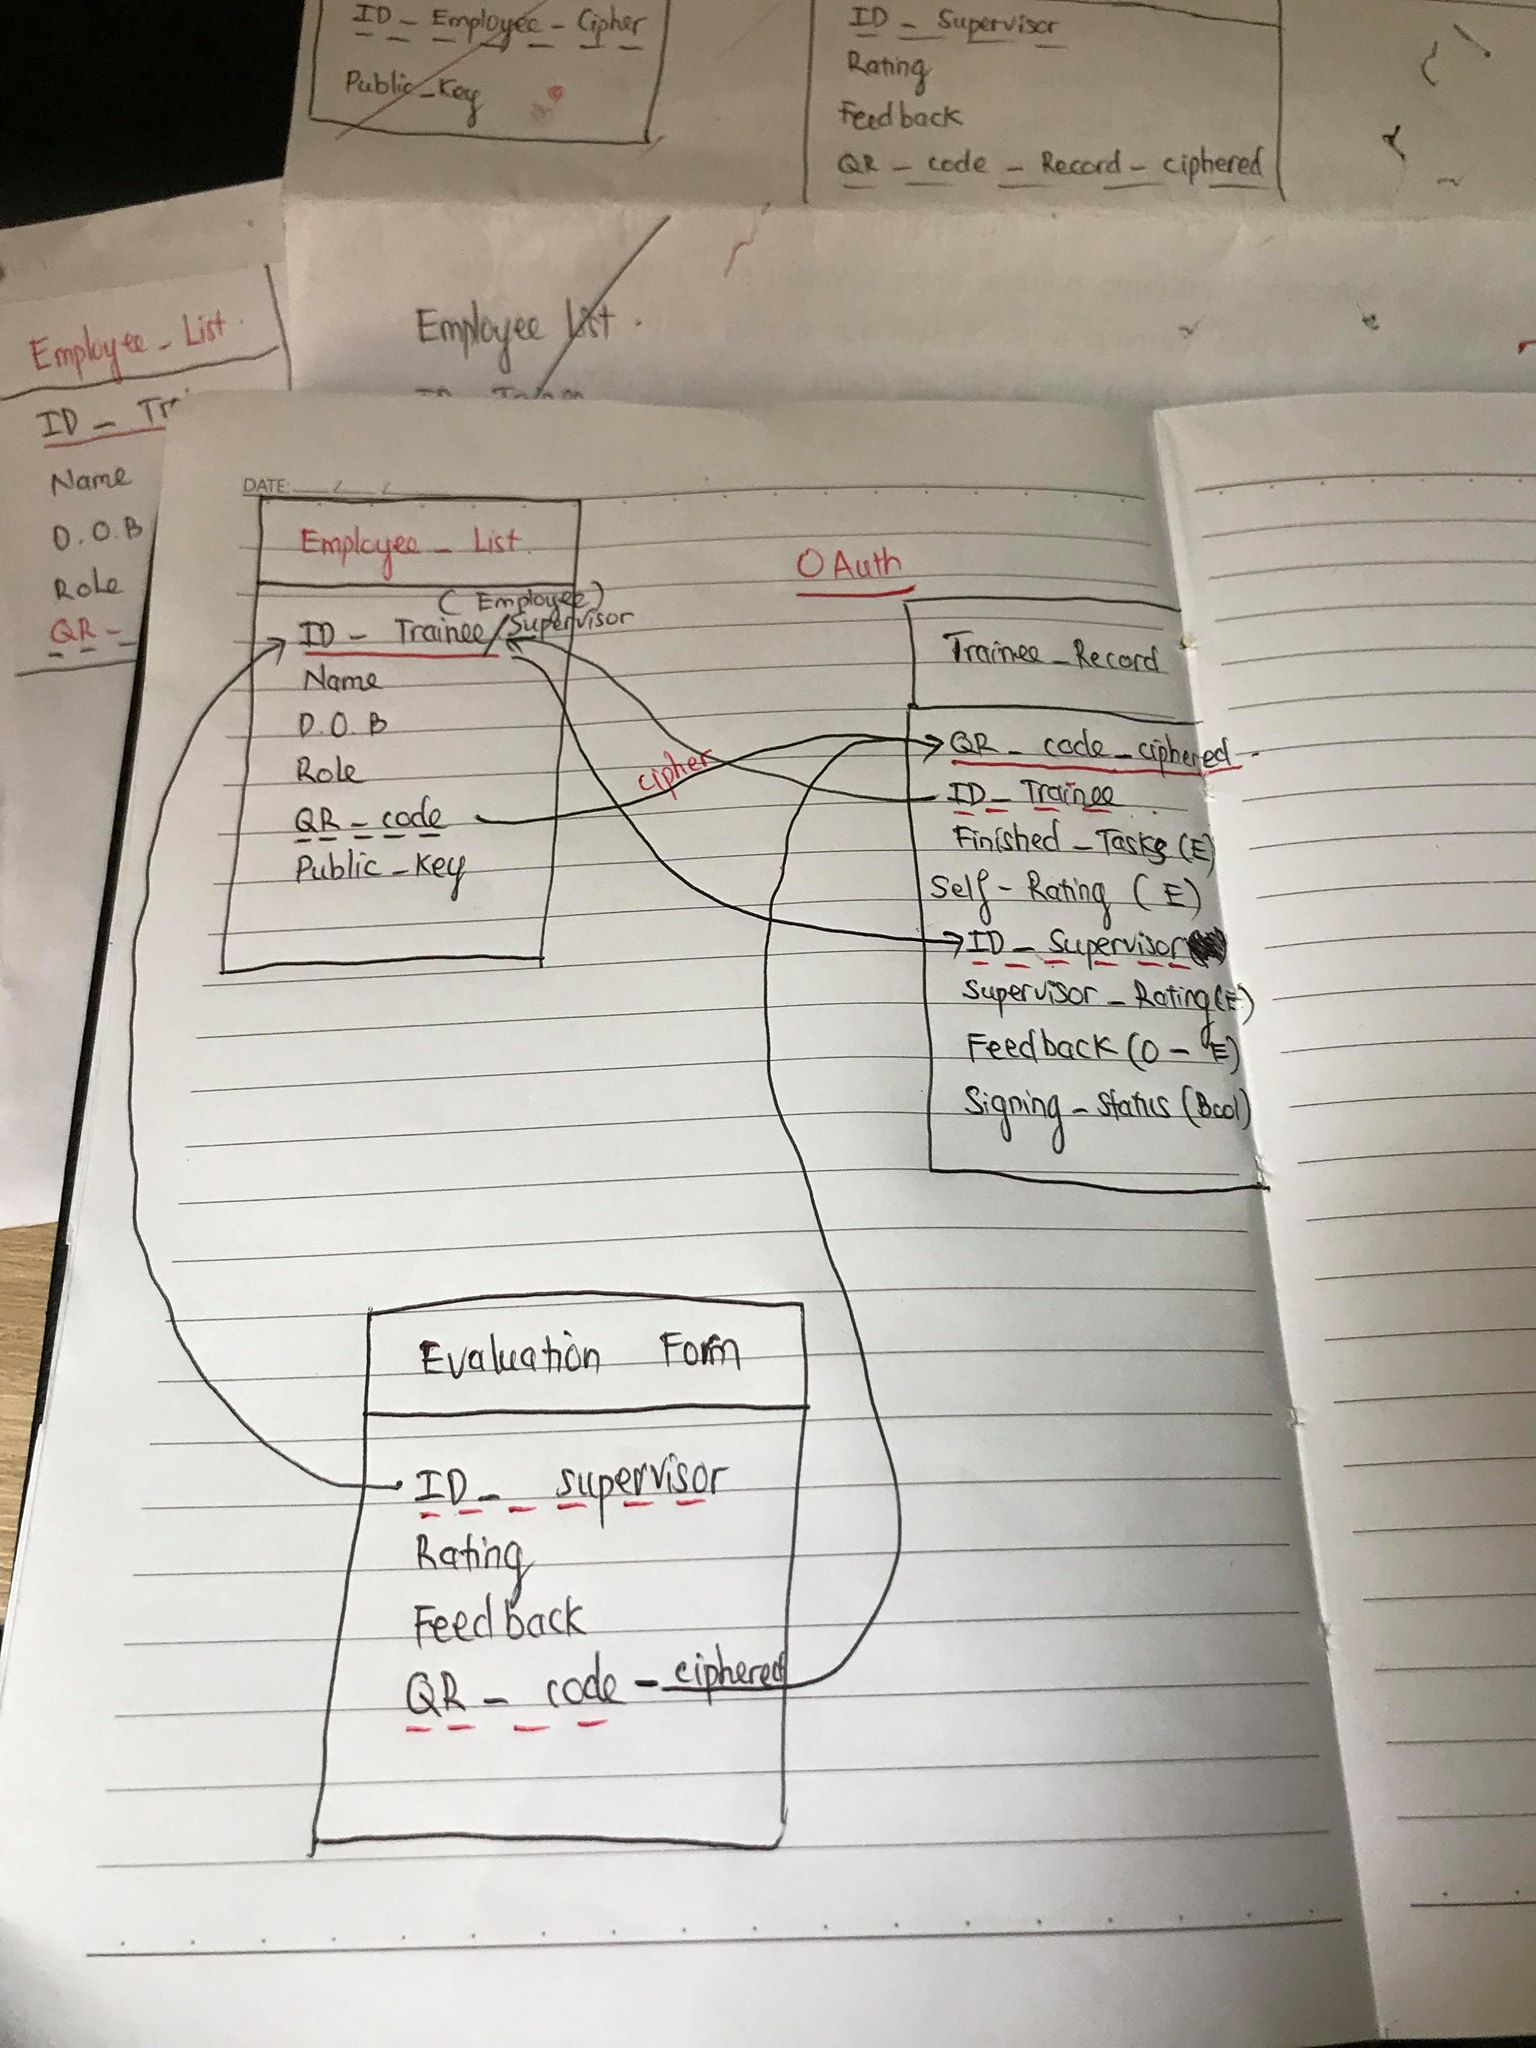 ID - Employee - Cipher
Public - Key
ID - Supervisor
Rating
Feedback
QR - code - Record - ciphered
Employee - List.
ID -
Name
D.O.B
Role
QR -
Employee List.
DATE: / /
Employee - List.
(Employee)
ID - Trainee/Supervisor
Name
D.O.B
Role
QR - code
Public - Key
cipher
OAuth
Trainee - Record
QR - code - ciphered
ID - Trainee
Finished - Tasks (E)
Self - Rating (E)
ID - Supervisor
Supervisor - Rating (E)
Feedback (O - E)
Signing - Status (Bool)
Evaluation Form
ID - supervisor
Rating
Feedback
QR - code - ciphered